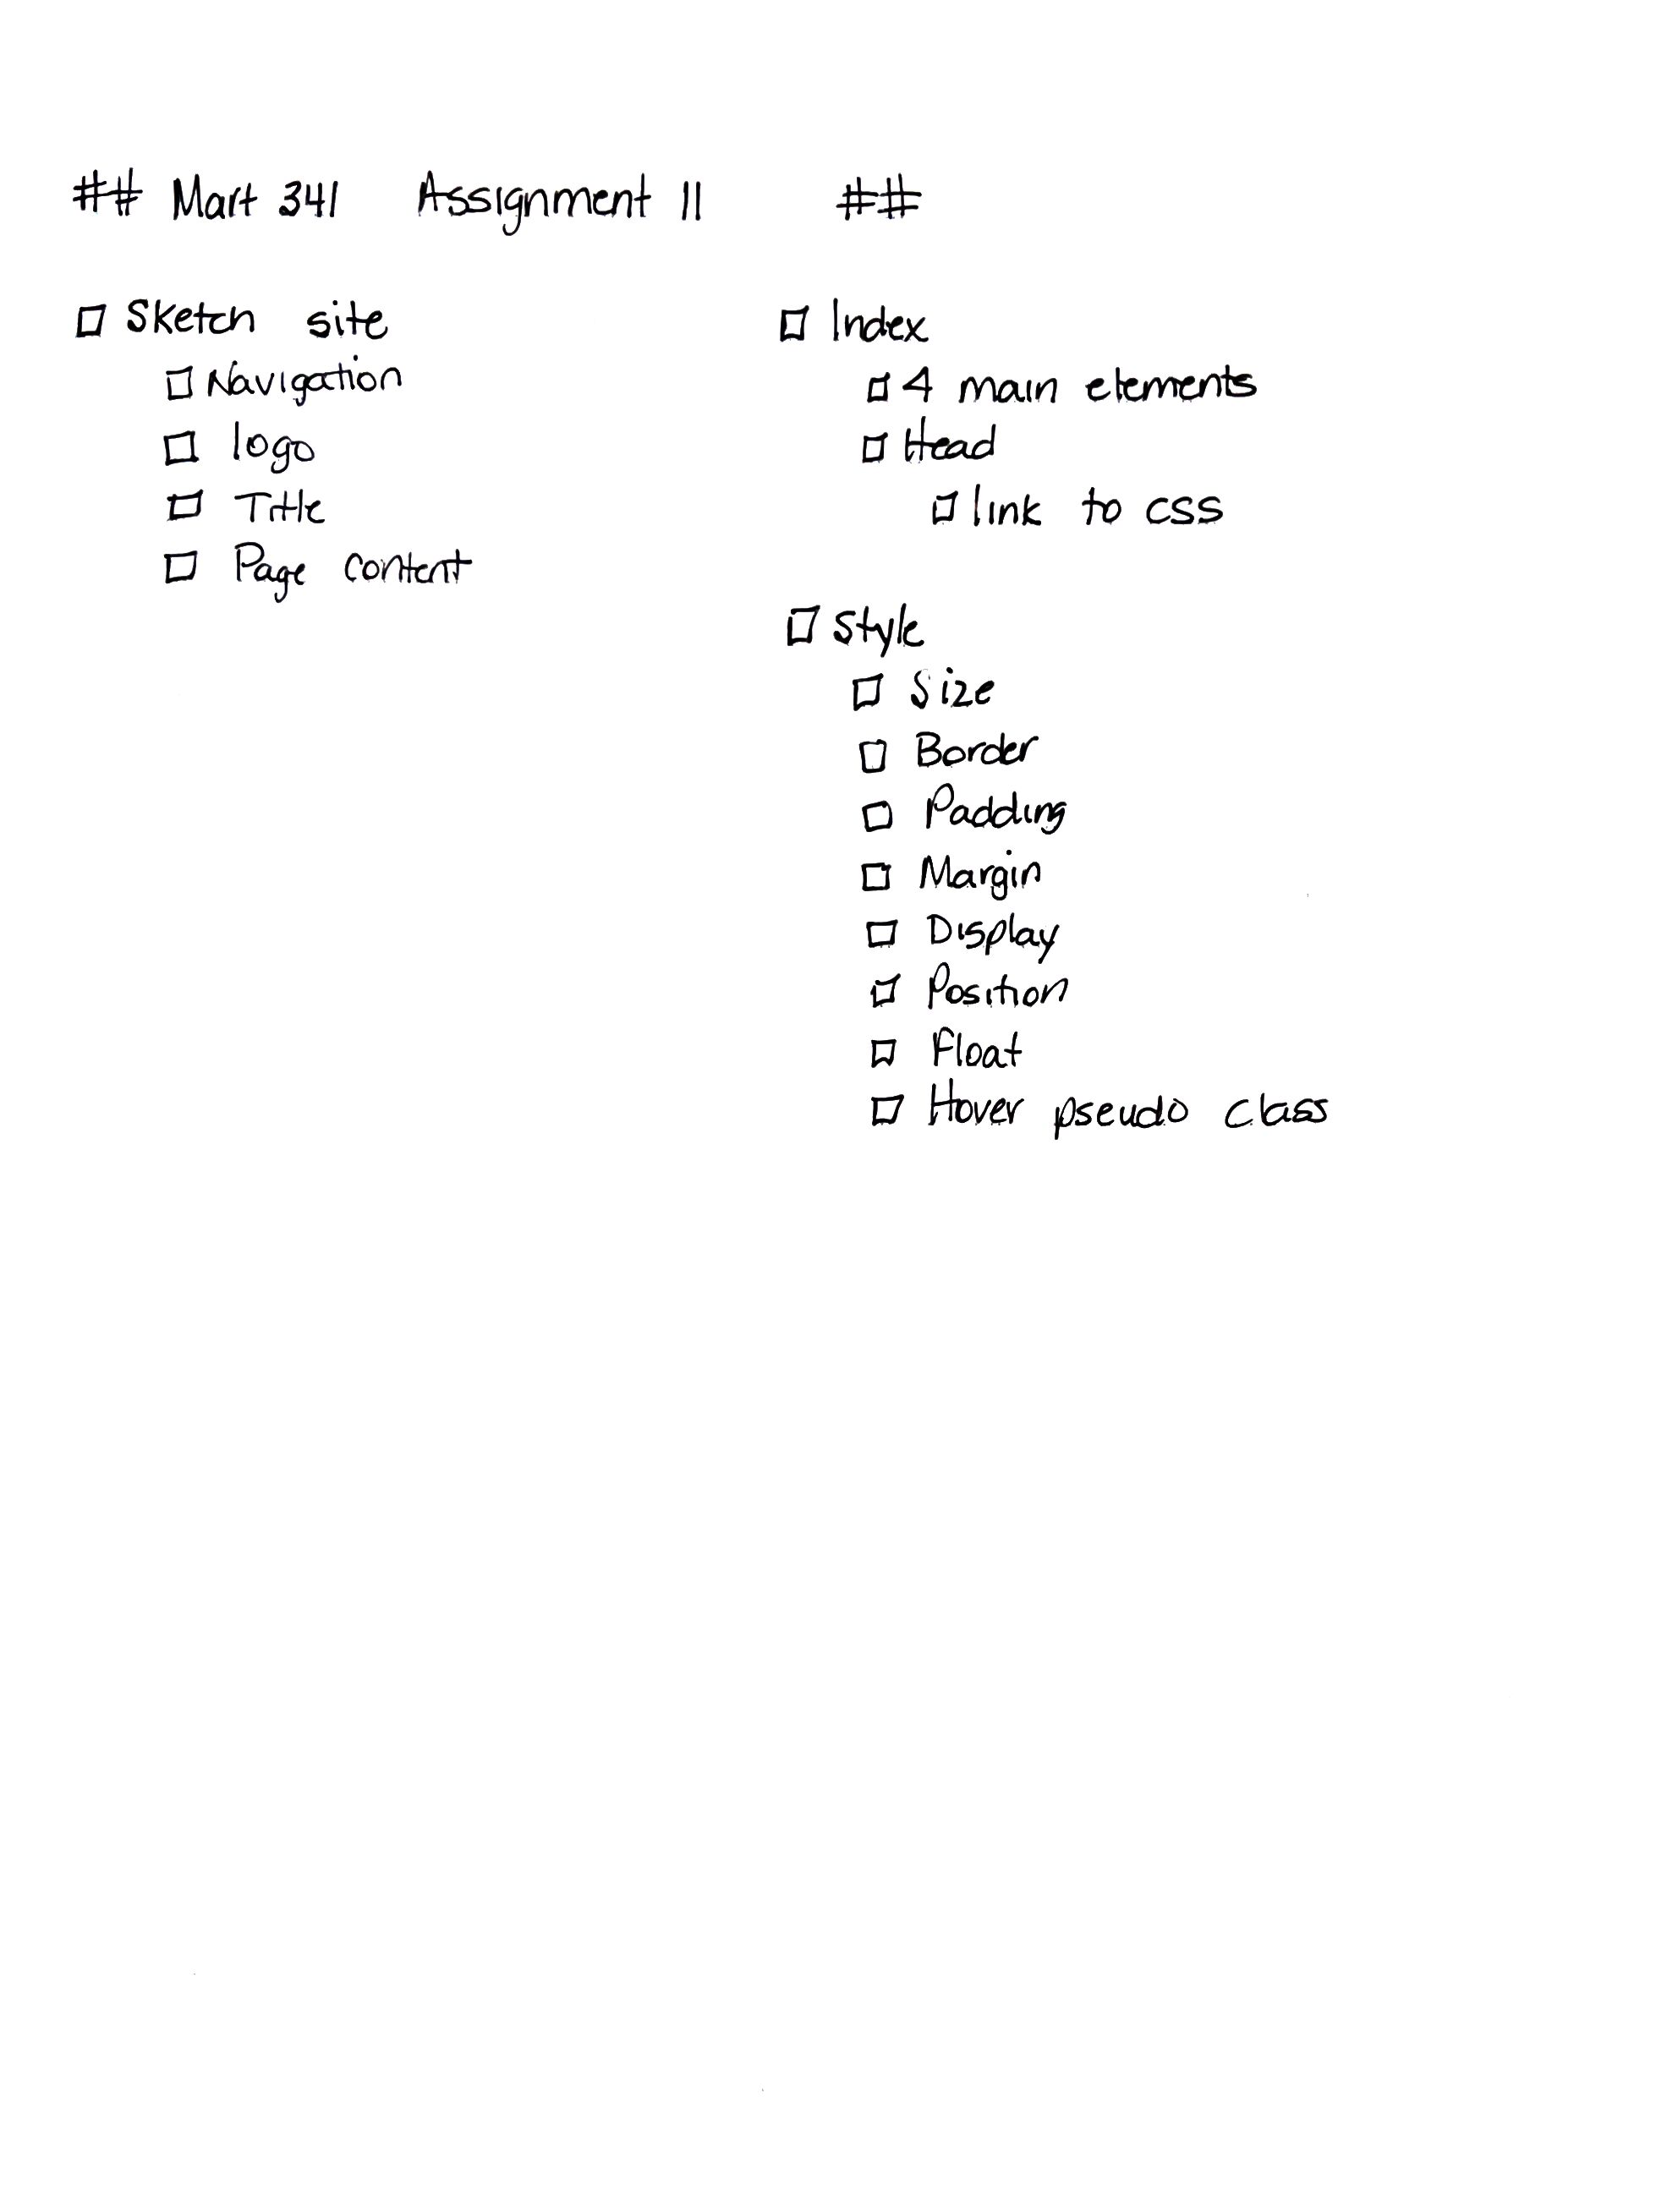 ## Mart 341 Assignment 11 ##
Sketch site
Navigation
logo
Title
Page content
Index
4 main elements
Head
link to css
Style
Size
Border
Padding
Margin
Display
Position
Float
Hover pseudo class